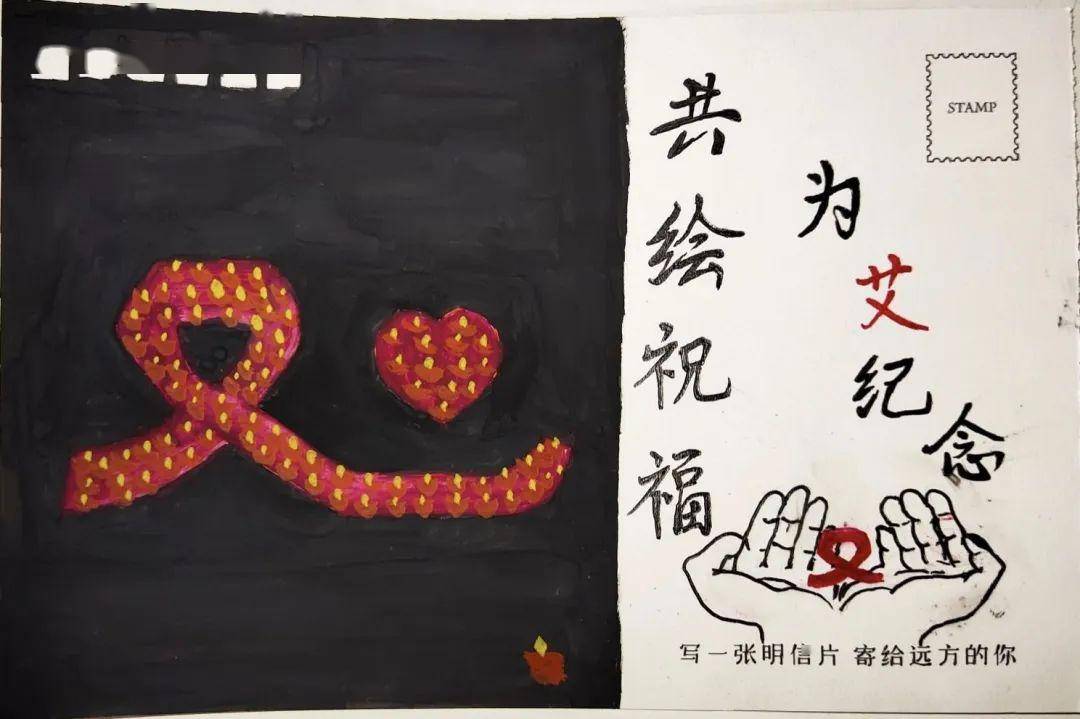 共绘祝福
STAMP
为艾纪念
写一张明信片 寄给远方的你